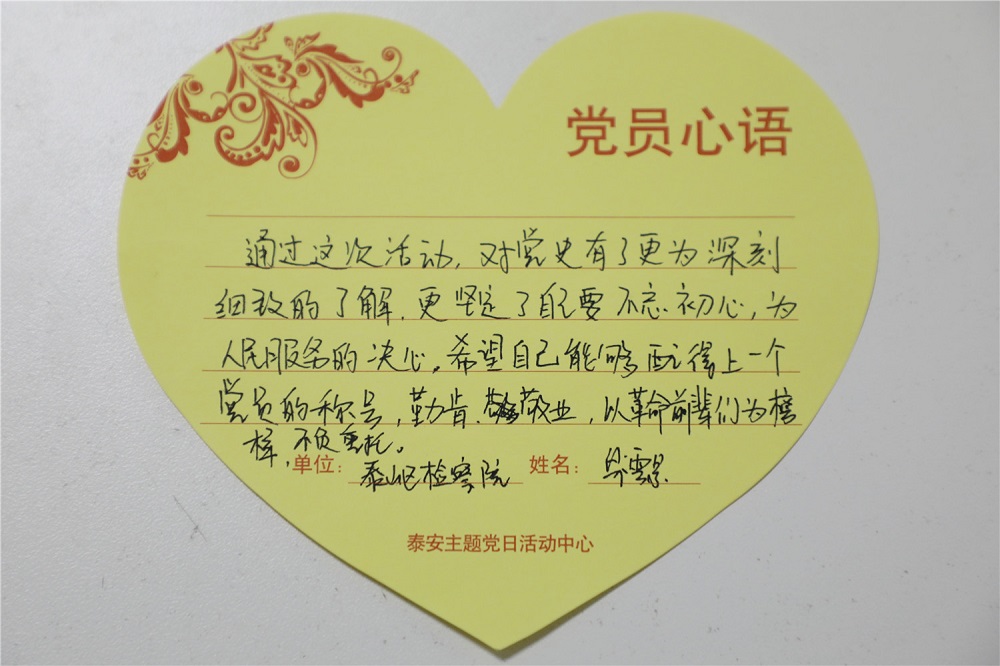 党员心语
通过这次活动，对党史有了更为深刻
细致的了解，更坚定了自己要不忘初心，为
人民服务的决心。希望自己能够配得上一个
党员的称号，勤肯、敬业，以革命前辈们为榜
样，不负重托。
单位：泰山区检察院 姓名：毕雲景
泰安主题党日活动中心